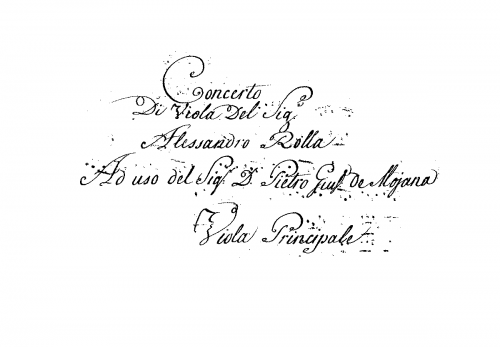 Concerto
Di Viola Del Sig.e
Alessandro Rolla
Ad uso del Sig.r D. Pietro Gius. de Mojana
Viola Principale